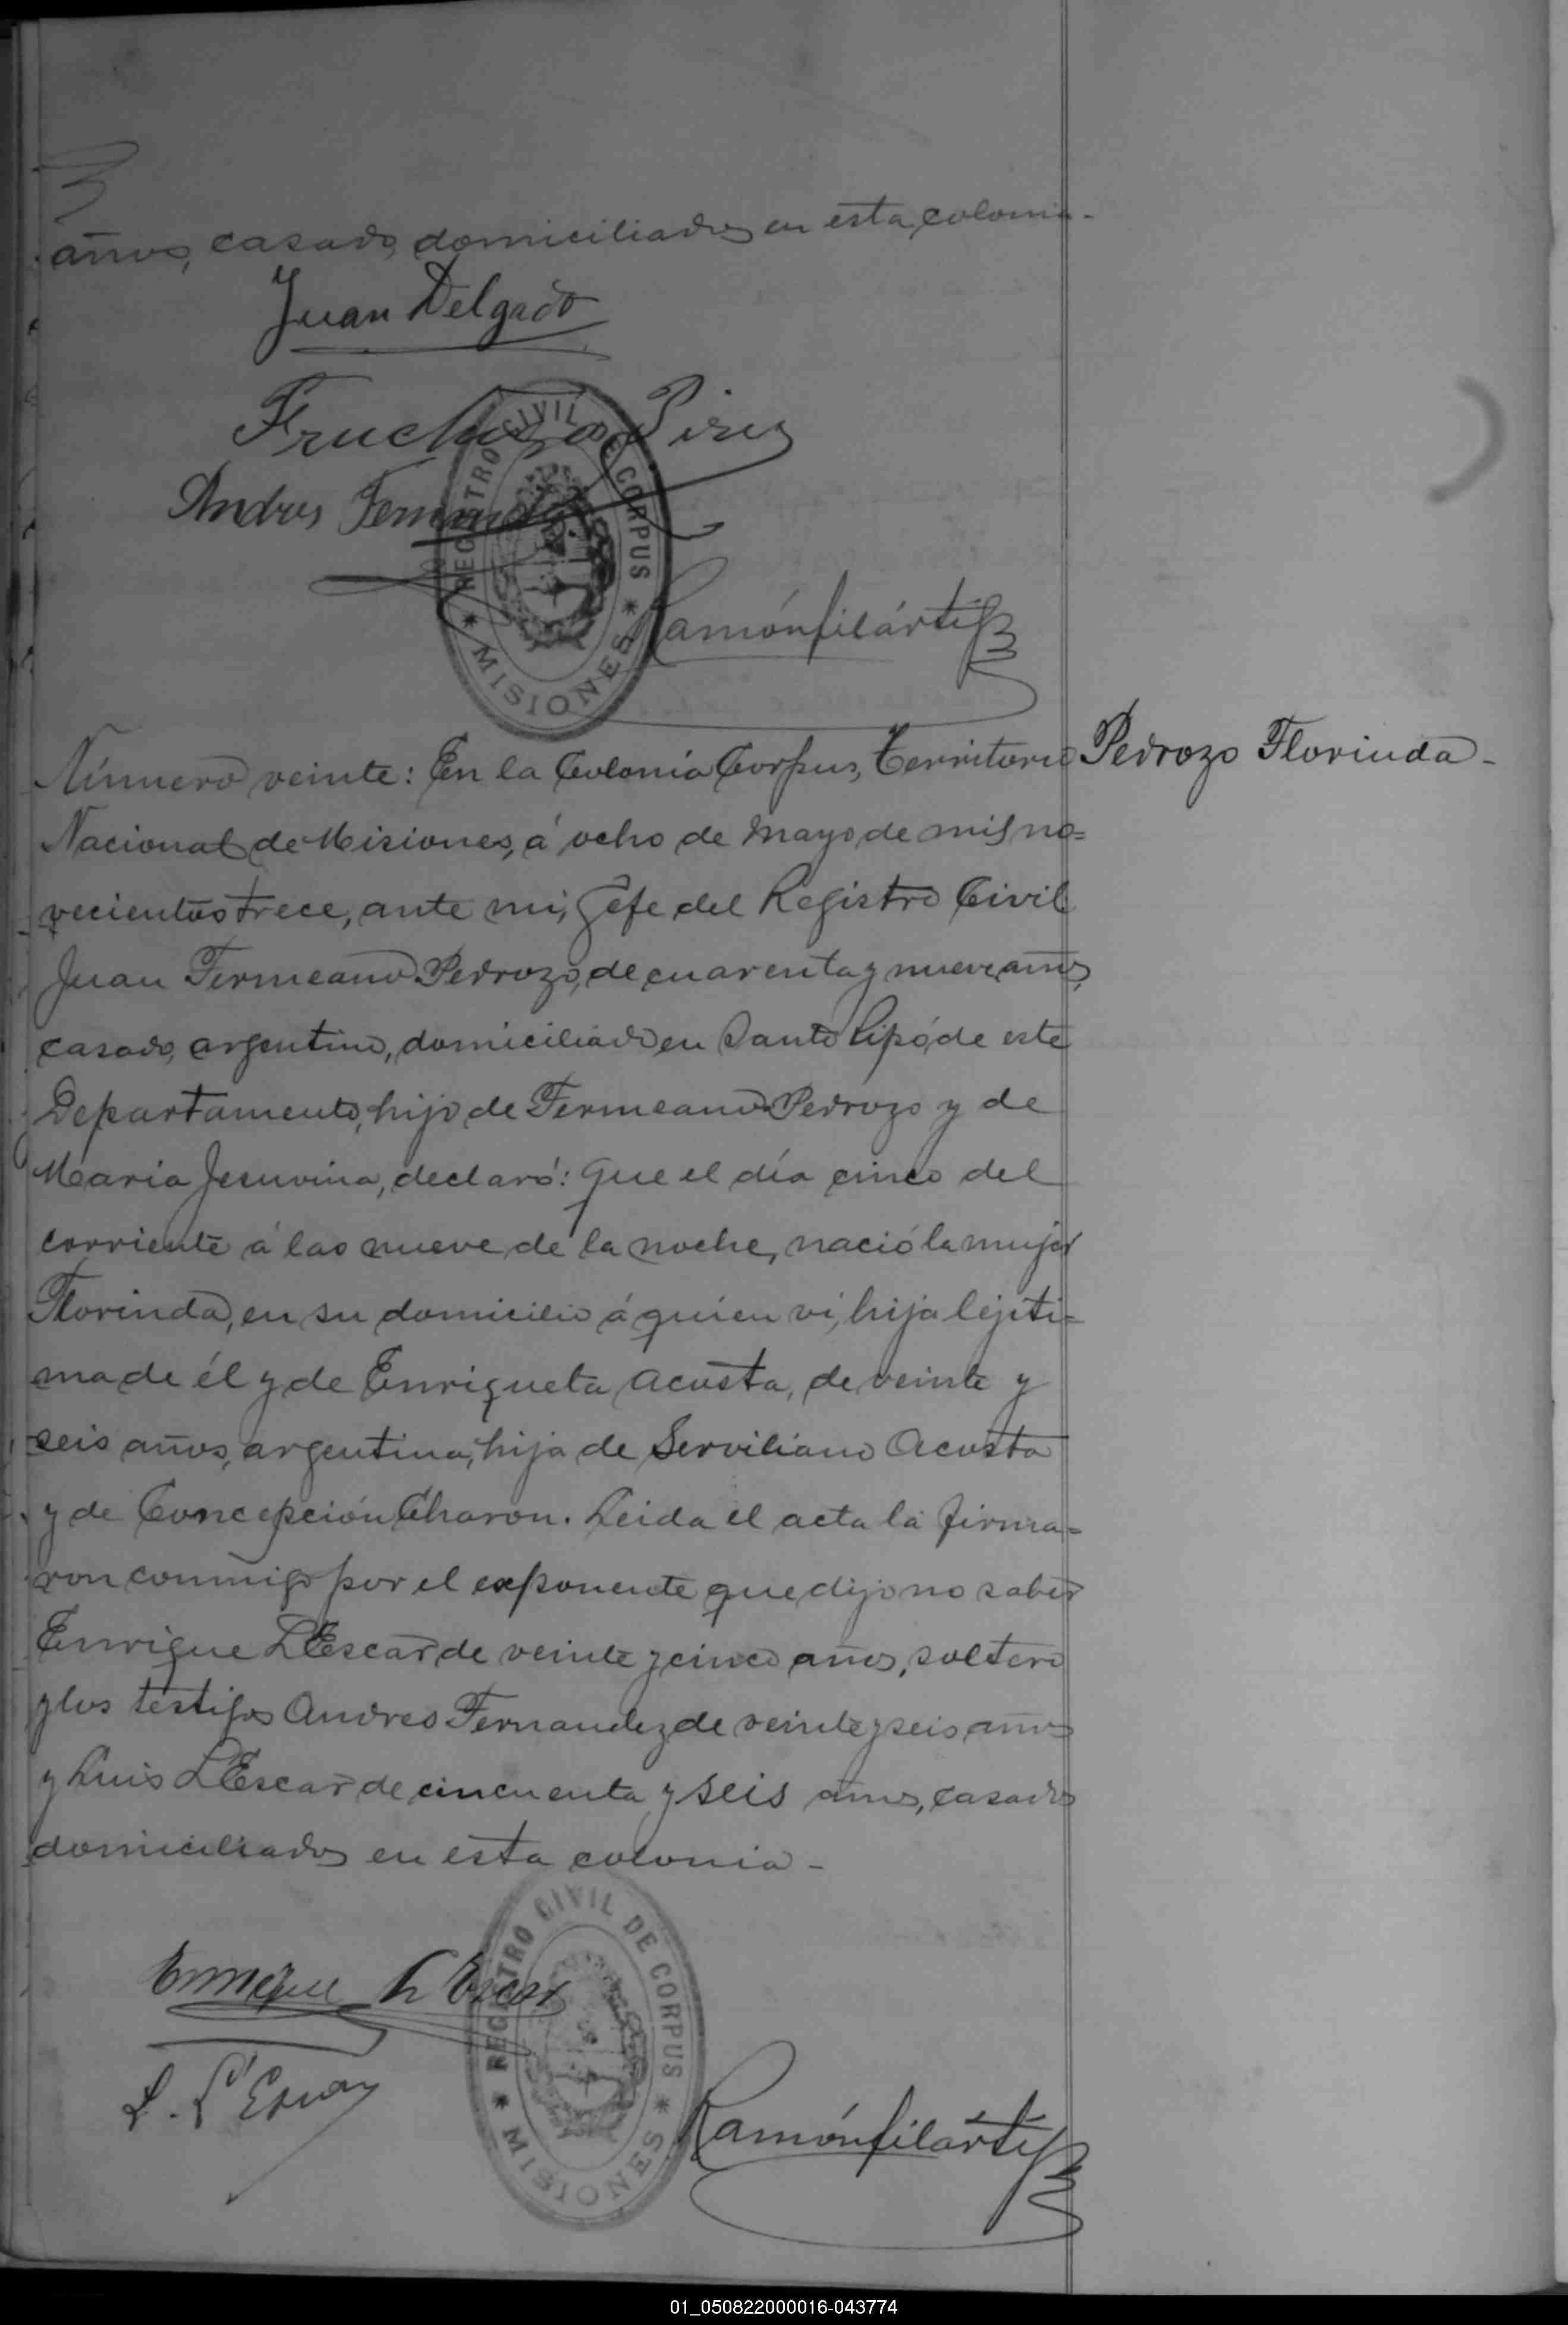 años, casado, domiciliados en esta colonia.-
Juan Delgado
Fructuoso Pires
Andres Fernandez
REGISTRO CIVIL DE CORPUS
* MISIONES *
Ramón Filártiga
Número veinte: En la Colonia Corpus, Territorio
Pedrozo Florinda-
Nacional de Misiones, á ocho de Mayo de mil no=
vecientos trece, ante mi, Jefe del Registro Civil
Juan Fermeano Pedrozo, de cuarenta y nueve años,
casado, argentino, domiciliado en Santo Pipó de este
Departamento, hijo de Fermeano Pedrozo y de
Maria Jesuvina, declaró: Que el día cinco del
corriente á las nueve de la noche, nació la mujer
Florinda, en su domicilio á quien vi, hija lejiti=
ma de él y de Enriqueta Acosta, de veinte y
seis años, argentina, hija de Serviliano Acosta
y de Concepción Charon. Leida el acta la firma=
ron conmigo por el exponente que dijo no saber
Enrique L'Escar de veinte y cinco años, soltero
y los testigos Andres Fernandez de veinte y seis años
y Luis L'Escar de cincuenta y seis años, casados
domiciliados en esta colonia-
Enrique L'Escar
REGISTRO CIVIL DE CORPUS
* MISIONES *
L. L'Escar
Ramón Filártiga
01_050822000016-043774